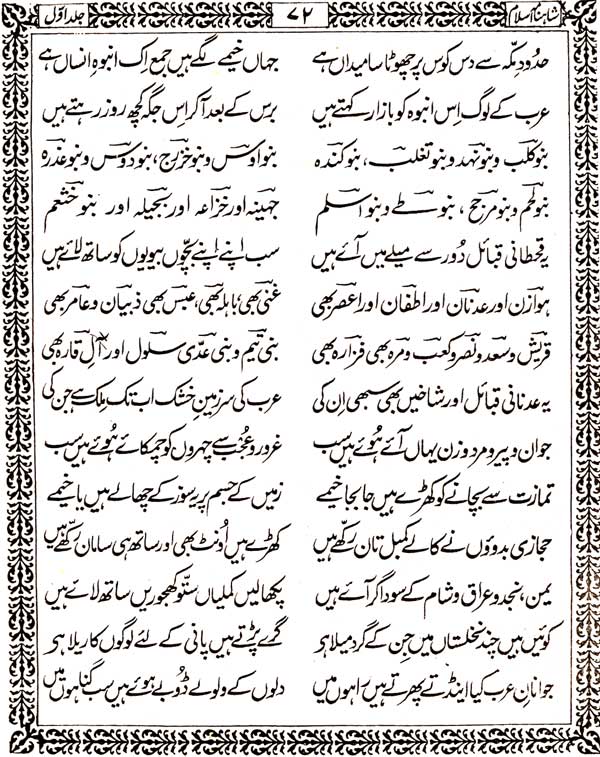 شاہنامۂ اسلام ۷۲ جلد اوّل
حدودِ مکّہ سے دس کوس پر چھوٹا سا میداں ہے جہاں خیمے لگے ہیں جمع اِک انبوہِ انساں ہے
عرب کے لوگ اِس انبوہ کو بازار کہتے ہیں برس کے بعد آکر اِس جگہ کچھ روز رہتے ہیں
بنو کلب و بنو نہد و بنو تغلب، بنو کندہ بنو اوس و بنو خزرج، بنو دوس و بنو عذرہ
بنو لخم و بنو مرجح، بنو طے و بنو اسلم جہینہ اور خزاعہ اور بجیلہ اور بنو خثعم
یہ قحطانی قبائل دُور سے میلے میں آئے ہیں سب اپنے اپنے بچّوں بیویوں کو ساتھ لائے ہیں
ہوازن اور عدنان اور اطفان اور اعصر بھی غنی بھی، باہلہ بھی، عبس بھی ذبیان و عامر بھی
قریش و سعد و نصر و کعب و مرہ بھی فزارہ بھی بنی تیم و بنی عدّی سلول اور آلِ قارہ بھی
یہ عدنانی قبائل اور شاخیں بھی سبھی اِن کی عرب کی سرزمینِ خشک اب تک مِلک ہے جن کی
جوان و پیر و مرد و زن یہاں آئے ہُوئے ہیں سب غرور و عُجب سے چہروں کو چمکائے ہُوئے ہیں سب
تمازت سے بچانے کو کھڑے ہیں جا بجا خیمے زمیں کے جسم پر سوز کے چھالے ہیں یا خیمے
حجازی بدوؤں نے کالے کمبل تان رکھے ہیں کھڑے ہیں اُونٹ بھی اور ساتھ ہی سامان رکھے ہیں
یمن، نجد و عراق و شام کے سوداگر آئے ہیں پکھالیں کملیاں ستّو کھجوریں ساتھ لائے ہیں
کوئیں ہیں چند نخلستاں میں جن کے گرد میلا ہو گرے پڑتے ہیں پانی کے لئے لوگوں کا ریلا ہو
جوانانِ عرب کیا اینڈتے پھرتے ہیں راہوں میں دلوں کے ولولے ڈوبے ہوئے ہیں سب گناہوں میں